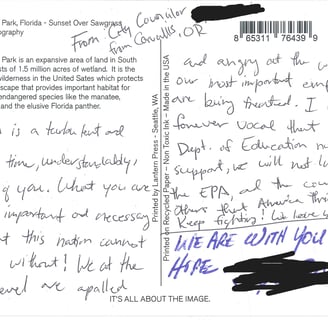 Park, Florida - Sunset Over Sawgrass
ography
Park is an expansive area of land in South
sts of 1.5 million acres of wetland. It is the
ilderness in the United States which protects
scape that provides important habitat for
endangered species like the manatee,
and the elusive Florida panther.
From: City Councilor
from Corvallis, OR
is a turbulent and
time, understandably,
of you. What you are
important and necessary
at this nation cannot
without! We at the
level are appalled
Printed by Lantern Press - Seattle, WA
Printed on Recycled Paper - Non Toxic Ink - Made in the USA
8 65311 76439 9
and angry at the
our most important
are being treated. I
forever vocal that
Dept. of Education
support, we will not
the EPA, and the
others that America
Keep fighting! We have
WE ARE WITH YOU
HOPE
IT'S ALL ABOUT THE IMAGE.